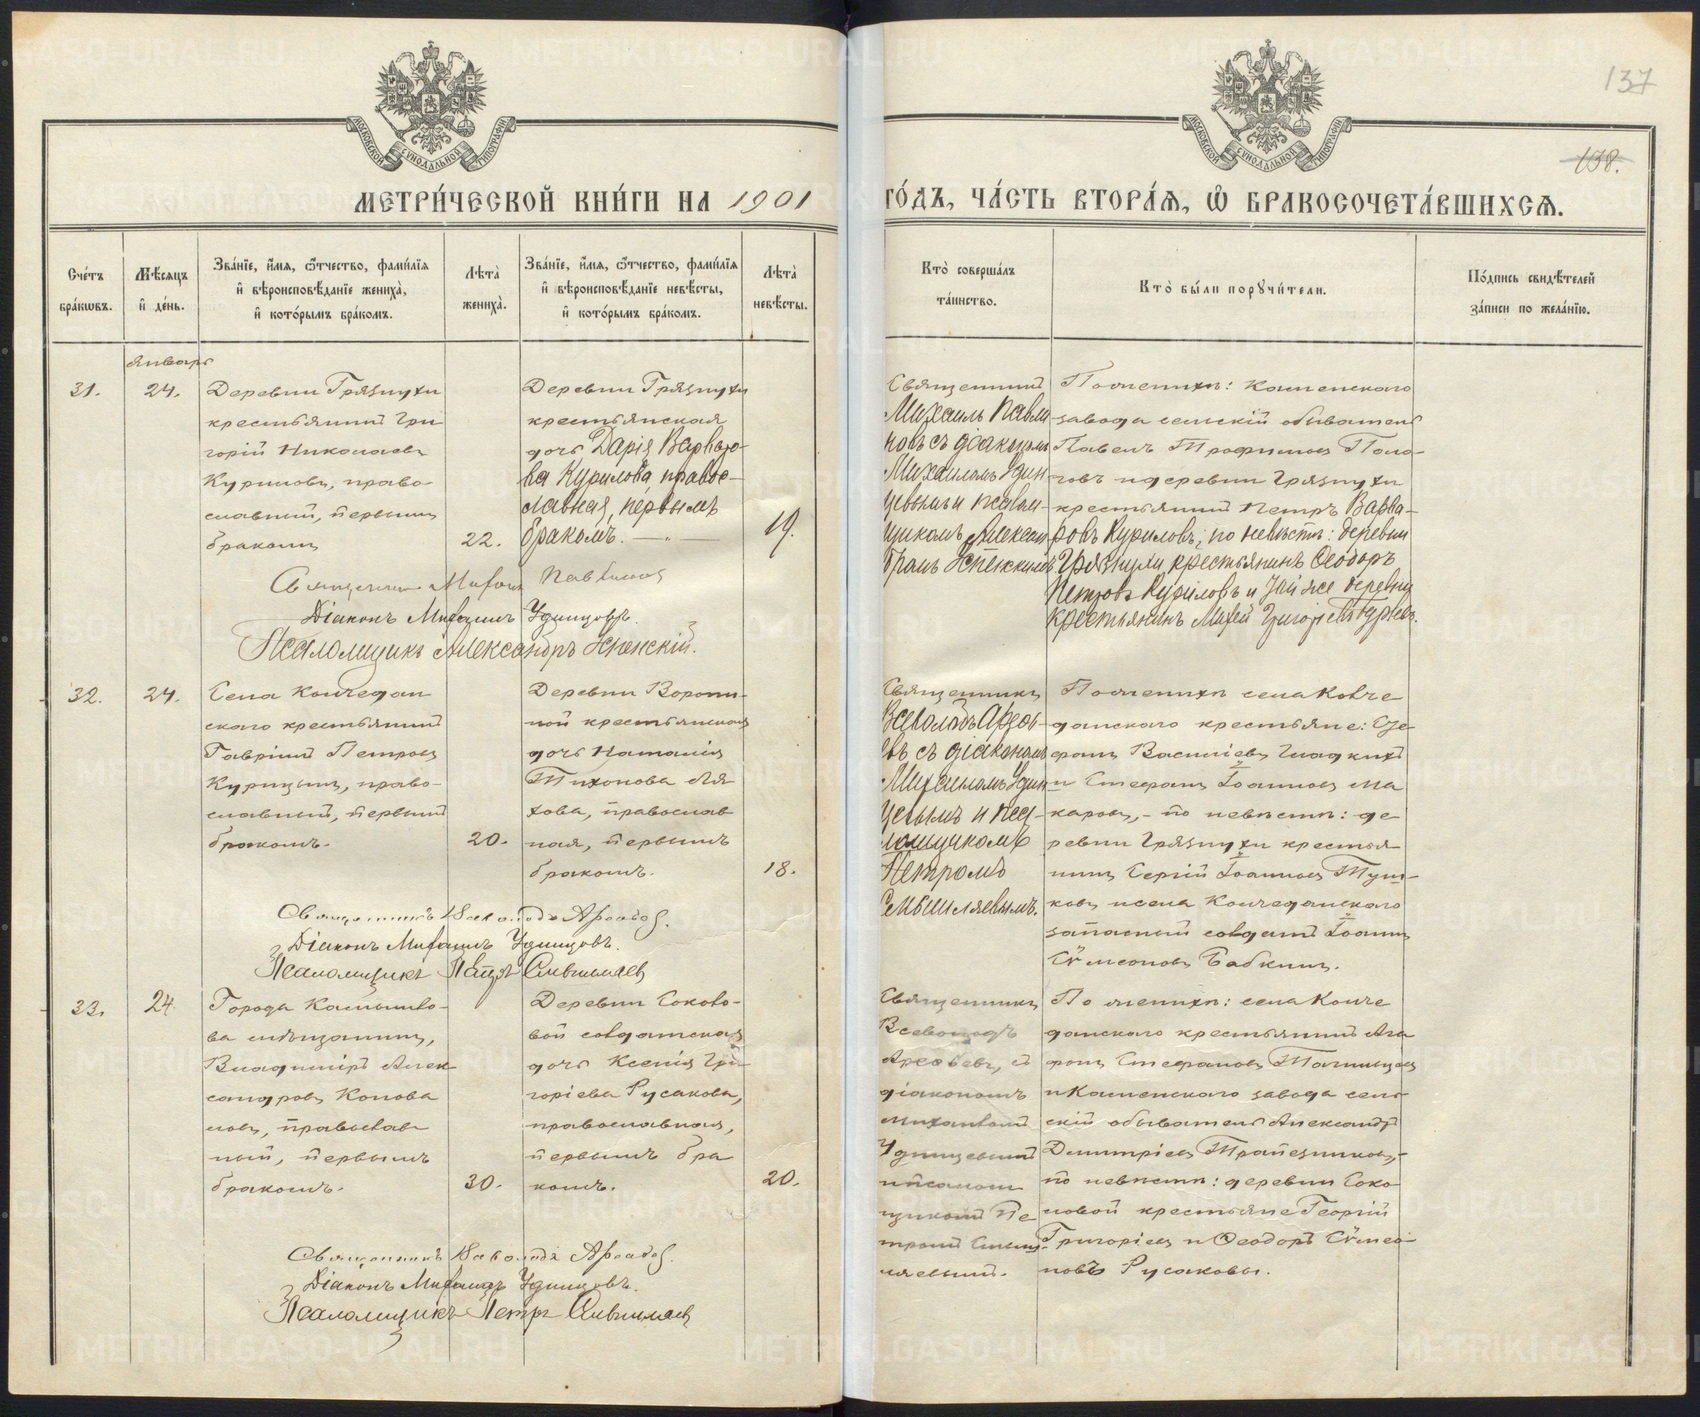 137
138.
МЕТРИ́ЧЕСКОЙ КНИ́ГИ НА 1901
ГО́ДЪ, ЧА́СТЬ ВТОРА́Я, Ѡ БРАКОСОЧЕТА́ВШИХСЯ.
Сче́тъ бра́кωвъ.
Мѣ́сяцъ и де́нь.
Зва́нїе, и́мя, ѻ́тчество, фами́лїя и вѣроисповѣ́данїе жениха̀, и кото́рымъ бра́комъ.
Лѣта̀ жениха̀.
Зва́нїе, и́мя, ѻ́тчество, фами́лїя и вѣроисповѣ́данїе невѣ́сты, и кото́рымъ бра́комъ.
Лѣта̀ невѣ́сты.
Кто̀ соверша́лъ та́инство.
Кто̀ бы́ли пору́чители.
По́дпись свидѣ́телей за́писи по жела́нїю.
Январь
31.
24.
Деревни Грязнухи
крестьянинъ Гри
горій Николаевъ
Куриловъ, право-
славный, первымъ
бракомъ
22.
Деревни Грязнухи
крестьянская
дочь Дарія Варваро-
ва Курилова, правос-
лавная, первымъ
бракомъ.
19.
Священникъ
Михаилъ Павли
новъ съ діакономъ
Михаиломъ Удин
цевымъ и псалом-
щикомъ Алексан
По женихѣ: Каменскаго
завода сельскій обыватель
Павелъ Трофимовъ Попо-
говъ и деревни Грязнухи
крестьянинъ Петръ Варва-
ровъ Куриловъ; по невѣстѣ: деревни
Грязнухи крестьянинъ Ѳеодоръ
Петровъ Куриловъ и той же деревни
крестьянинъ
Священникъ Михаилъ Павлиновъ
Діаконъ Михаилъ Удинцовъ.
Псаломщикъ Александръ Успенскій.
32.
24.
Села Колчедан
скаго крестьянинъ
Гавріилъ Петровъ
Курицынъ, право-
славный, первымъ
бракомъ.
20.
Деревни Ворони-
ной крестьянская
дочь Наталія
Тихонова Ля
хова, православ
ная, первымъ
бракомъ.
18.
Священникъ
Всеволодъ Арефь-
евъ съ діакономъ
Михаиломъ Удин
цевымъ и пса-
ломщикомъ
Петромъ
По женихѣ села Колче
данскаго крестьяне: Сте-
фанъ Василіевъ Гладкихъ
и Стефанъ Іоанновъ Ма
каровъ, - по невѣстѣ: де
ревни Грязнухи крестья
нинъ Сергій Іоанновъ Туш-
ковъ и села Колчеданскаго
запасный солдатъ Іоаннъ
Сѵмеоновъ Бабкинъ.
Священникъ Всеволодъ Арефьев.
Діаконъ Михаилъ Удинцовъ.
Псаломщикъ Петръ
33.
24.
Города Камышло-
ва мѣщанинъ,
Владиміръ Алек
сандровъ Конова
ловъ, православ
ный, первымъ
бракомъ.
30.
Деревни Соколо-
вой солдатская
дочь Ксенія Гри
горіева Русакова,
православная,
первымъ бра
комъ.
20.
Священникъ
Всеволодъ
Арефьевъ, съ
діакономъ
Михаиломъ
Удинцевымъ
и псалом
щикомъ Пе
По женихѣ: села Колче
данскаго крестьянинъ Ага
фонъ Стефановъ
и Каменскаго завода сель
скій обыватель Александръ
Димитріевъ Трапезниковъ, -
по невѣстѣ: деревни Соко
ловой крестьяне Георгій
Григоріевъ и Ѳеодоръ Сѵмео-
новъ Русаковы.
Священникъ Всеволодъ Арефьев.
Діаконъ Михаилъ Удинцовъ.
Псаломщикъ Петръ
METRIKI.GASO-URAL.RU